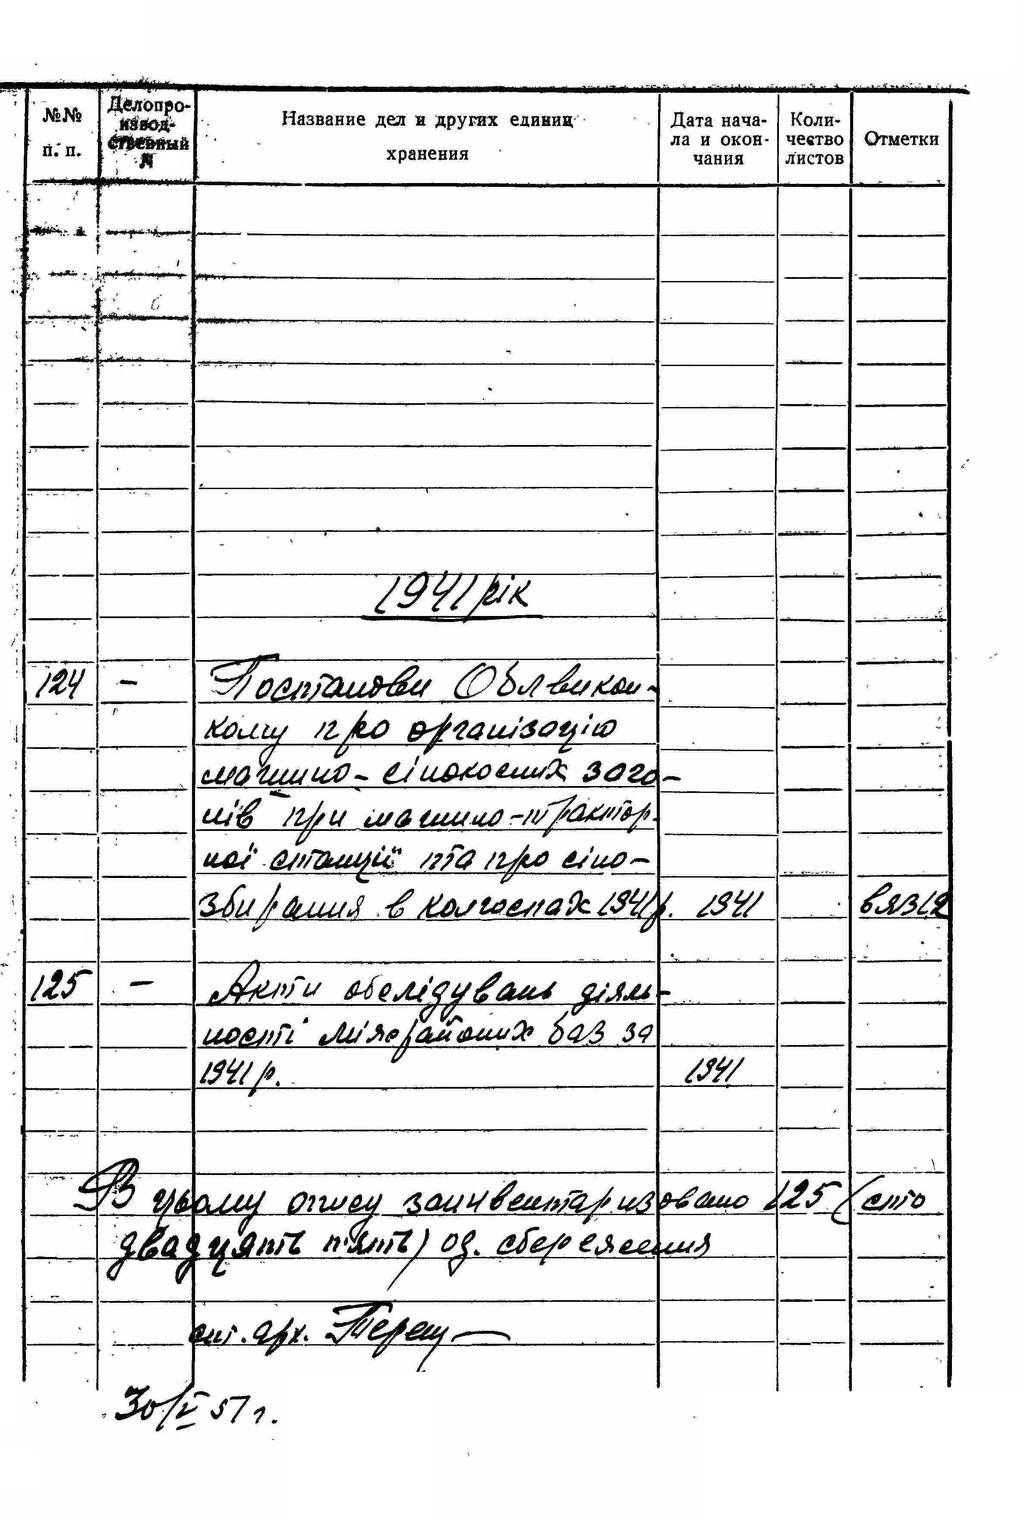 №№ п. п.
Делопроизводственный №
Название дел и других единиц хранения
Дата начала и окончания
Количество листов
Отметки
1941 рік
124 — Постанови Облвикон-
кому про організацію
машино-сінокосних заго-
нів при машино-трактор-
ної станції та про сіно-
збирання в колгоспах 1941 р. 1941
125 — Акти обслідувань діяль-
ності міжрайоних баз за
1941 р. 1941
В цьому опису заинвентаризовано 125 (сто
двадцять п'ять) од. збереження
ст. арх.
30/V 57 г.